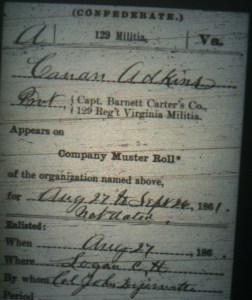 (CONFEDERATE.)
A 129 Militia, Va.
Canan Adkins
Pvt., { Capt. Barnett Carter's Co.,
129 Reg't Virginia Militia.
Appears on
Company Muster Roll*
of the organization named above,
for Aug 27 to Sept 26, 1861.
Not dated
Enlisted:
When Aug 27, 186
Where Logan C. H.
By whom Col John
Period